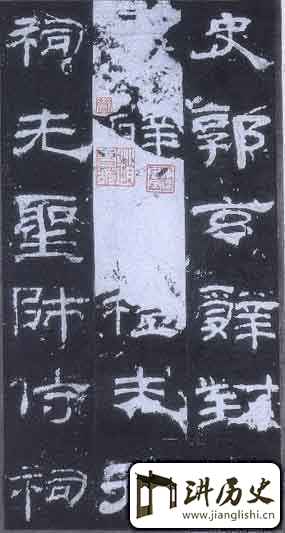 史郭玄辭對
禮未行
祠先聖師侍祠
讲历史
www.jianglishi.cn